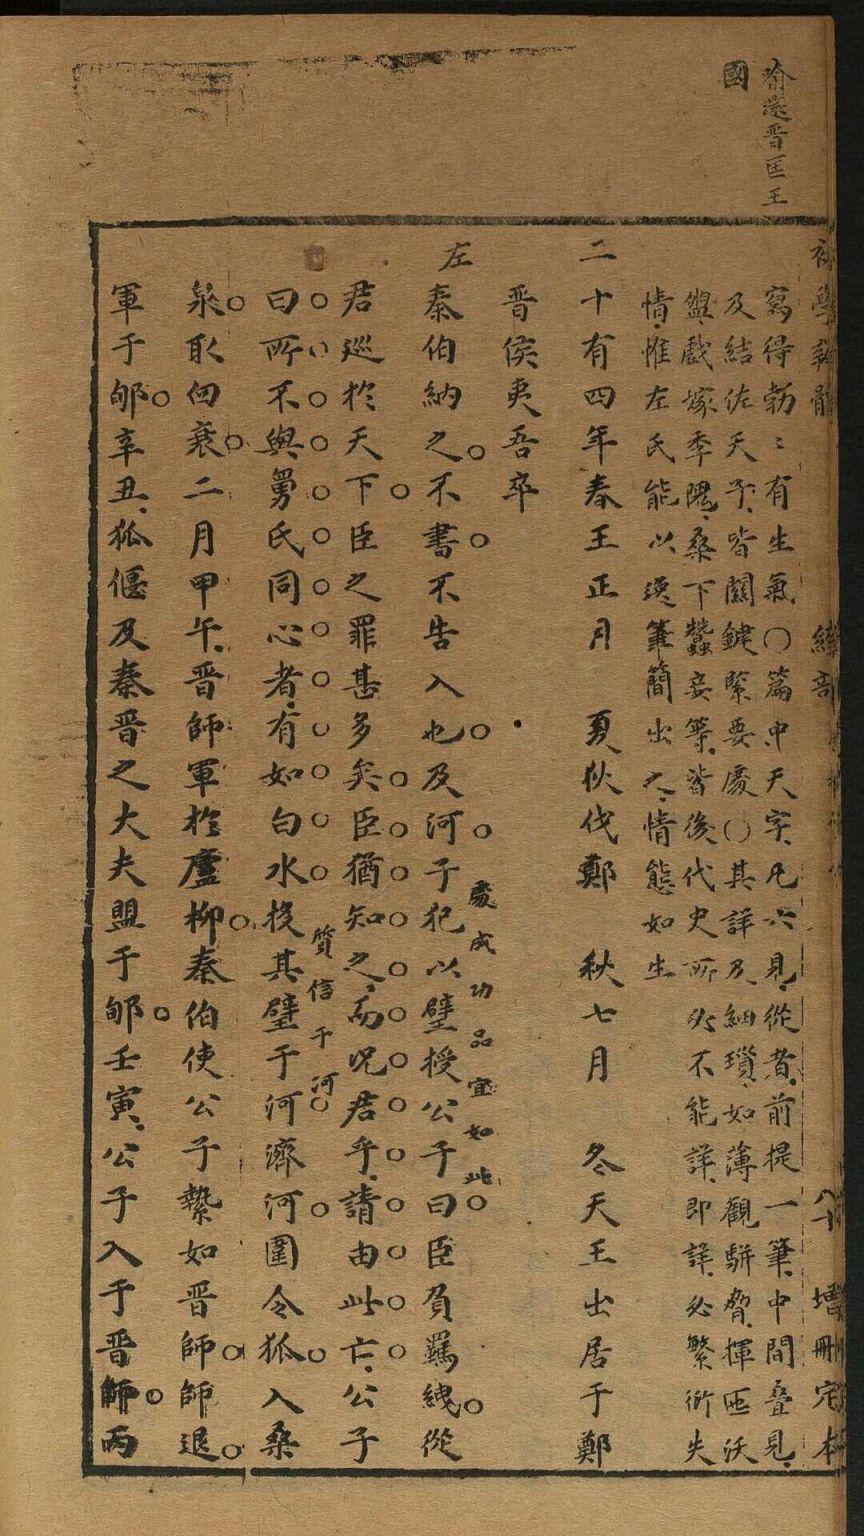 喻遂晋匡王
國
寫得勃〻有生氣〇篇中天字凡六見從者前提一筆中間叠見
及結佐天子皆關鍵緊要處〇其詳及細瑣如薄觀駢脅揮匜沃
盥戲嫁季隗桑下蠶妾等皆後代史所必不能詳即詳必繁衍失
情惟左氏能以逸筆簡出之情態如生
二十有四年春王正月　夏狄伐鄭　秋七月　冬天王出居于鄭
晋侯夷吾卒
左　秦伯納之不書不告入也及河子犯以璧授公子曰臣負羈絏從
處成功品宜如此
君巡於天下臣之罪甚多矣臣猶知之而况君乎請由此亡公子
曰所不與舅氏同心者有如白水投其璧于河濟河圍令狐入桑
質信于河
泉取臼衰二月甲午晋師軍於廬柳秦伯使公子縶如晋師師退
軍于郇辛丑狐偃及秦晋之大夫盟于郇壬寅公子入于晋師丙
八十
增刪定本